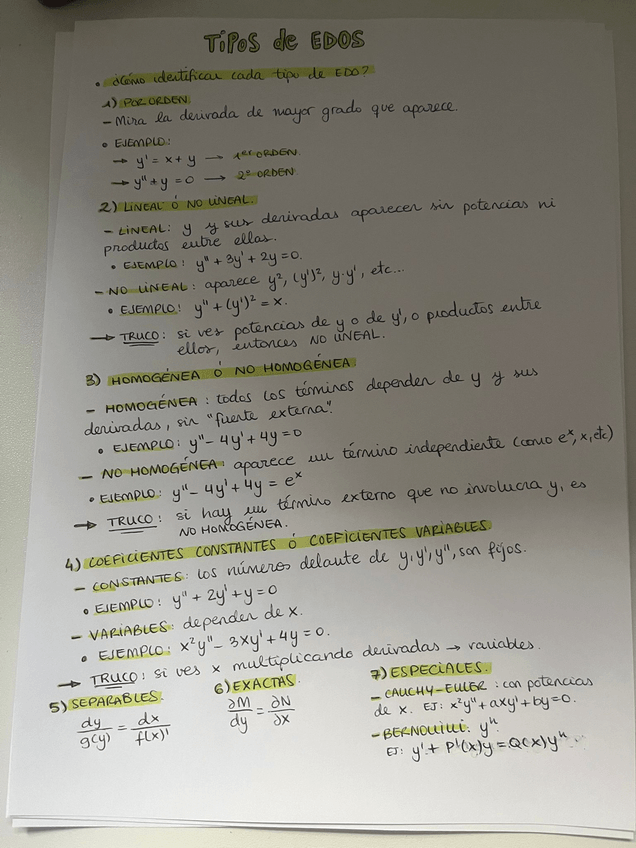 TIPOS de EDOS
• ¿Cómo identificar cada tipo de EDO?
1) POR ORDEN
- Mira la derivada de mayor grado que aparece.
• EJEMPLO:
→ y' = x + y → 1ER ORDEN.
→ y'' + y = 0 → 2º ORDEN.
2) LINEAL Ó NO LINEAL.
- LINEAL: y y sus derivadas aparecen sin potencias ni
productos entre ellas.
• EJEMPLO: y'' + 3y' + 2y = 0.
- NO LINEAL: aparece y², (y')², y·y', etc...
• EJEMPLO: y'' + (y')² = x.
→ TRUCO: si ves potencias de y o de y', o productos entre
ellos, entonces NO LINEAL.
3) HOMOGÉNEA Ó NO HOMOGÉNEA.
- HOMOGÉNEA: todos los términos dependen de y y sus
derivadas, sin "fuente externa".
• EJEMPLO: y'' - 4y' + 4y = 0
- NO HOMOGÉNEA: aparece un término independiente (como eˣ, x, etc)
• EJEMPLO: y'' - 4y' + 4y = eˣ
→ TRUCO: si hay un término externo que no involucra y, es
NO HOMOGÉNEA.
4) COEFICIENTES CONSTANTES Ó COEFICIENTES VARIABLES
- CONSTANTES: los números delante de y, y', y'', son fijos.
• EJEMPLO: y'' + 2y' + y = 0
- VARIABLES: depender de x.
• EJEMPLO: x²y'' - 3xy' + 4y = 0.
→ TRUCO: si ves x multiplicando derivadas → variables.
5) SEPARABLES.
dy/g(y) = dx/f(x)'
6) EXACTAS.
∂M/dy = ∂N/∂x
7) ESPECIALES.
- CAUCHY-EULER: con potencias
de x. EJ: x²y'' + axy' + by = 0.
- BERNOUILLI: yⁿ.
EJ: y' + P'(x)y = Q(x)yⁿ